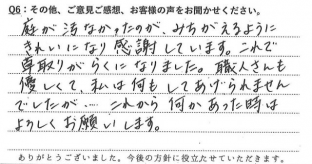 Q6：その他、ご意見ご感想、お客様の声をお聞かせください。
庭が汚なかったのが、みちがえるように
きれいになり感謝しています。これで
草取りがらくになりました。職人さんも
優しくて、私は何もしてあげられません
でしたが… これから何かあった時は
よろしくお願いします。
ありがとうございました。今後の方針に役立たせていただきます。